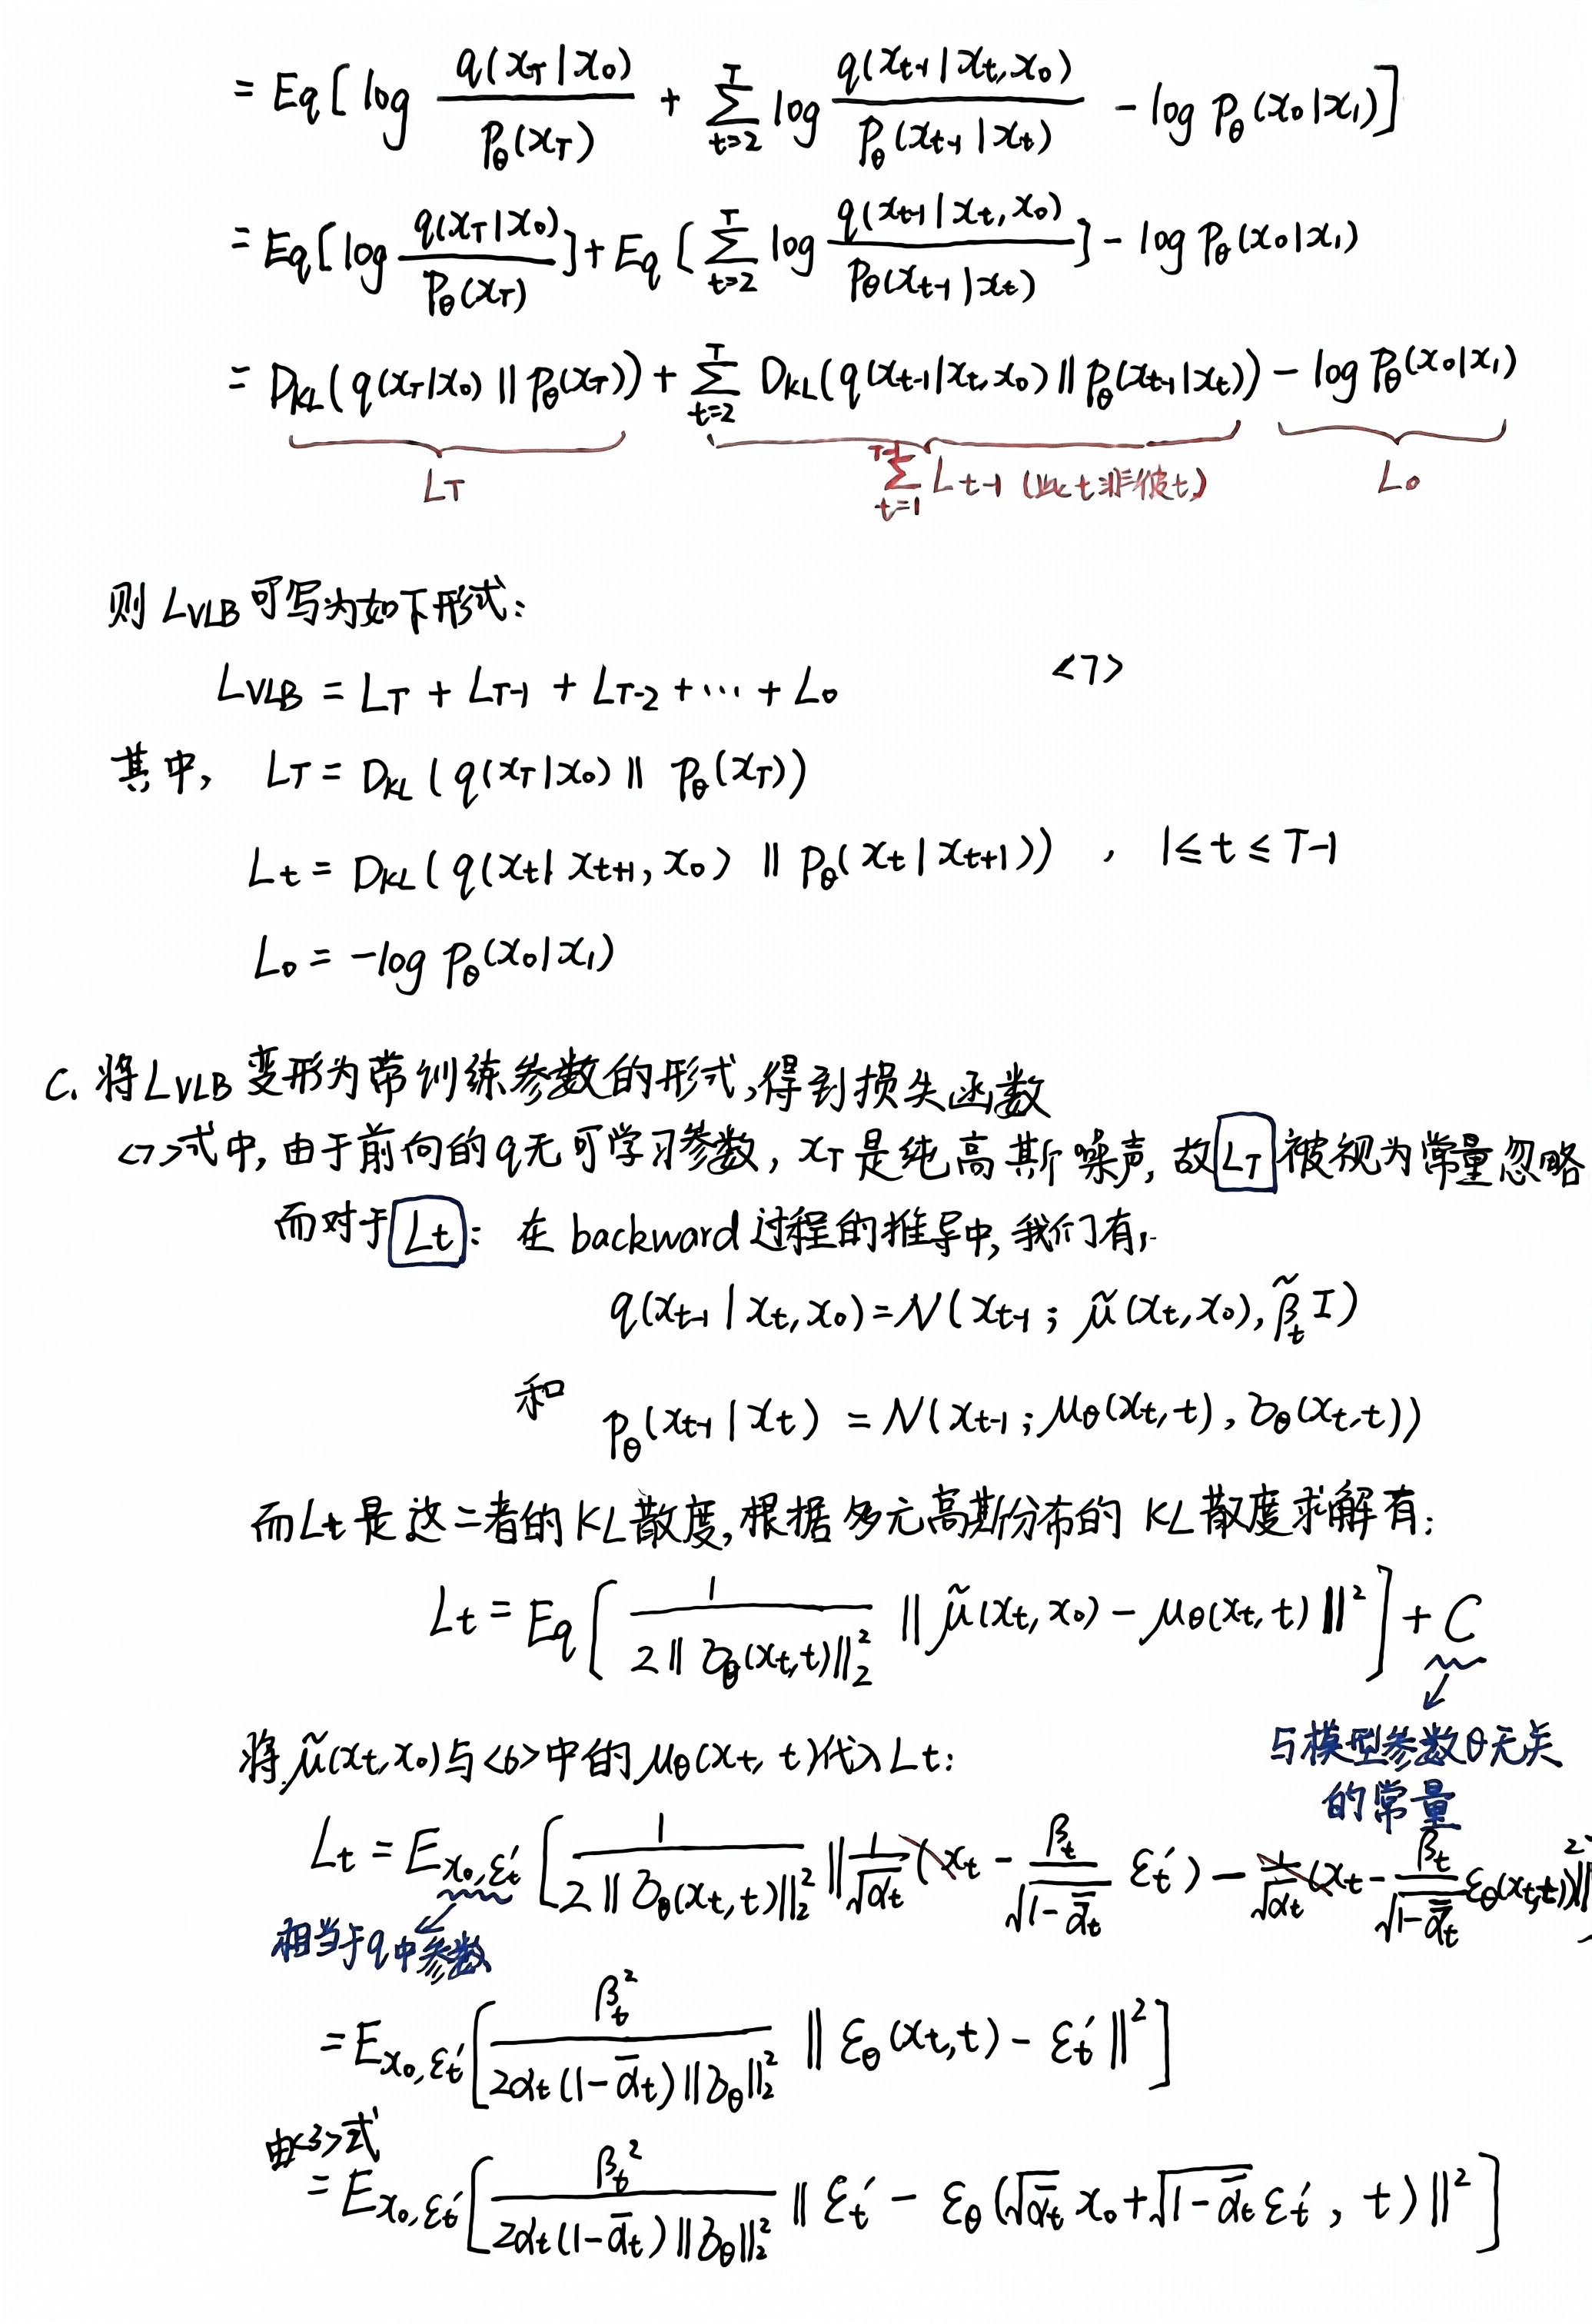 = Eq[ log q(x_T|x_0) / P_θ(x_T) + Σ_{t=2}^{T} log q(x_{t-1}|x_t,x_0) / P_θ(x_{t-1}|x_t) - log P_θ(x_0|x_1) ]
= Eq[ log q(x_T|x_0) / P_θ(x_T) ] + Eq[ Σ_{t=2}^{T} log q(x_{t-1}|x_t,x_0) / P_θ(x_{t-1}|x_t) ] - log P_θ(x_0|x_1)
= D_KL(q(x_T|x_0) || P_θ(x_T)) + Σ_{t=2}^{T} D_KL(q(x_{t-1}|x_t,x_0) || P_θ(x_{t-1}|x_t)) - log P_θ(x_0|x_1)
L_T Σ_{t=1}^{T-1} L_{t-1} (此t非彼t) L_0
则 L_VLB 可写为如下形式:
L_VLB = L_T + L_{T-1} + L_{T-2} + ··· + L_0 <7>
其中, L_T = D_KL(q(x_T|x_0) || P_θ(x_T))
L_t = D_KL(q(x_t|x_{t+1},x_0) || P_θ(x_t|x_{t+1})) , 1≤t≤T-1
L_0 = -log P_θ(x_0|x_1)
C. 将L_VLB变形为带训练参数的形式,得到损失函数
<7>式中,由于前向的q无可学习参数, x_T是纯高斯噪声,故L_T被视为常量忽略
而对于L_t: 在backward过程的推导中,我们有:
q(x_{t-1}|x_t,x_0)=N(x_{t-1}; μ̃(x_t,x_0), β̃_t I)
和 P_θ(x_{t-1}|x_t) = N(x_{t-1}; μ_θ(x_t,t), σ_θ(x_t,t))
而L_t是这二者的KL散度,根据多元高斯分布的KL散度求解有:
L_t = Eq[ 1 / 2||σ_θ(x_t,t)||₂² || μ̃(x_t,x_0) - μ_θ(x_t,t) ||² ] + C
与模型参数θ无关
的常量
将μ̃(x_t,x_0)与<6>中的μ_θ(x_t,t)代入L_t:
L_t = E_{x_0,ε_t'} [ 1 / 2||σ_θ(x_t,t)||₂² || 1/√α_t (x_t - β_t/√(1-ᾱ_t) ε_t') - 1/√α_t (x_t - β_t/√(1-ᾱ_t) ε_θ(x_t,t)) ||² ]
相当于q中参数
= E_{x_0,ε_t'} [ β_t² / 2α_t(1-ᾱ_t)||σ_θ||₂² || ε_θ(x_t,t) - ε_t' ||² ]
由<3>式
= E_{x_0,ε_t'} [ β_t² / 2α_t(1-ᾱ_t)||σ_θ||₂² || ε_t' - ε_θ(√ᾱ_t x_0 + √(1-ᾱ_t) ε_t', t) ||² ]